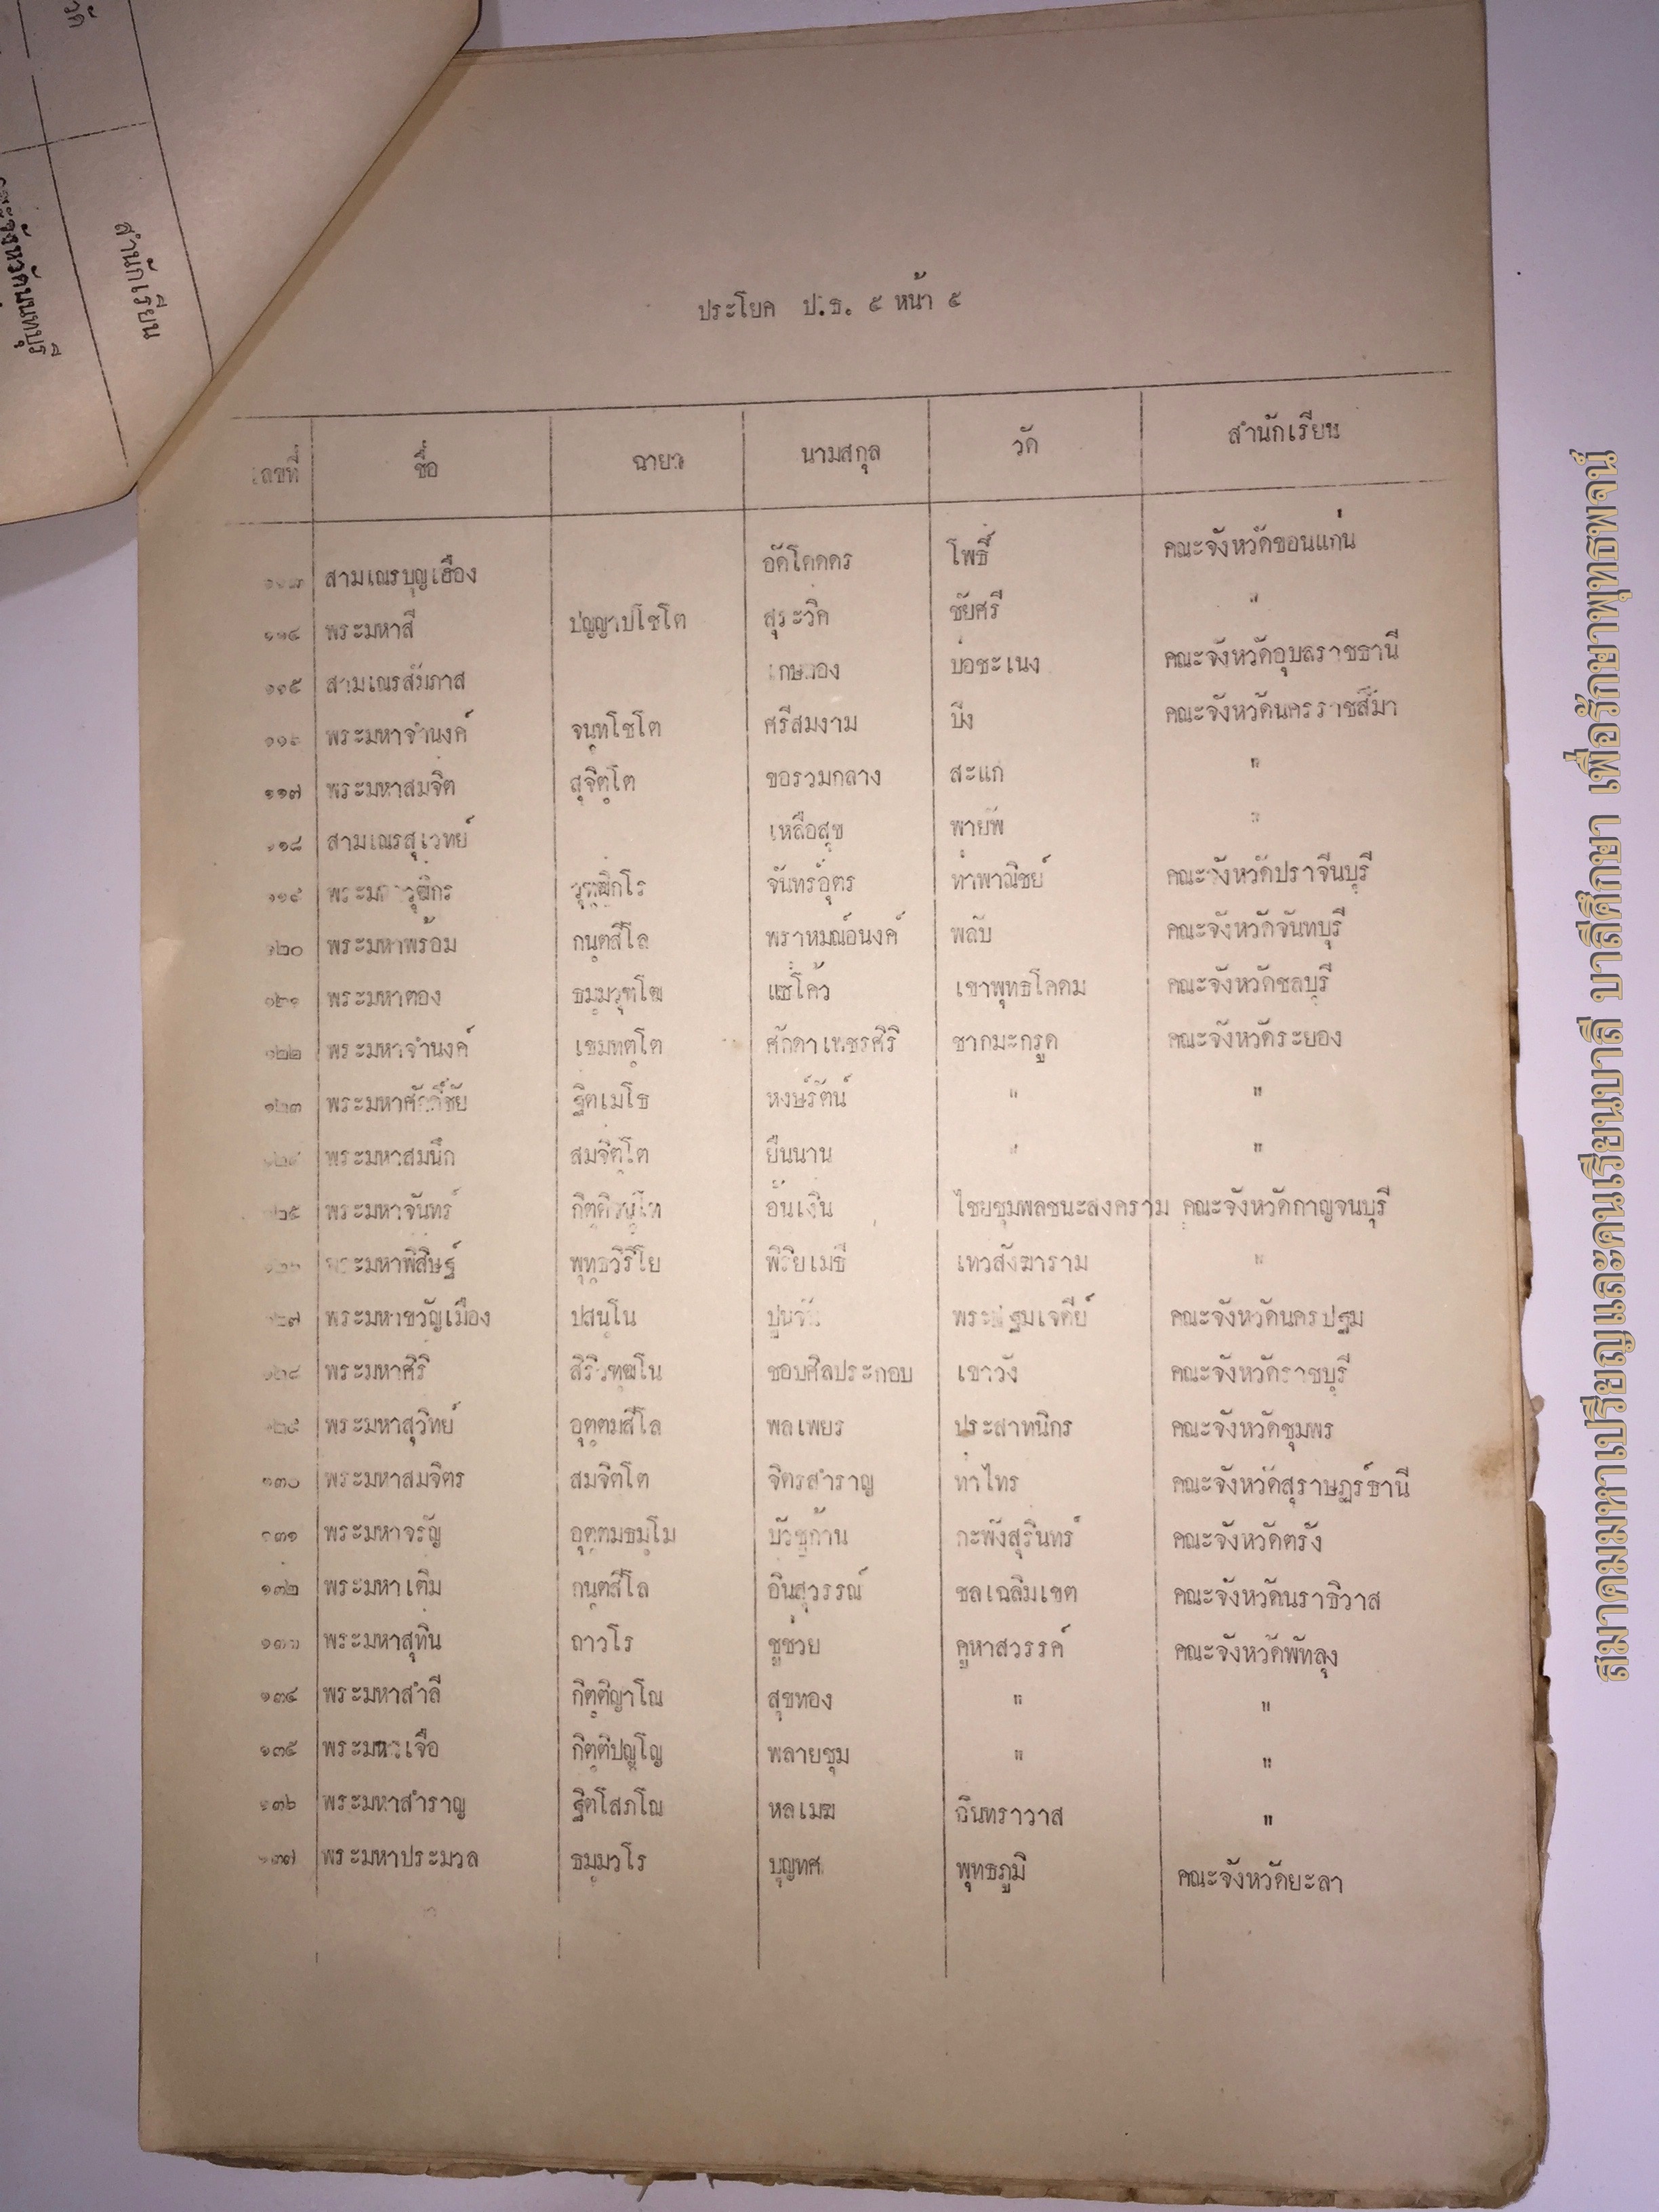 สำนักเรียน
ประโยค ป.ธ. ๕ หน้า ๕
เลขที่ ชื่อ ฉายา นามสกุล วัด สำนักเรียน
สามเณรบุญเฮือง อัคโคคคร โพธิ์ คณะจังหวัดขอนแก่น
๑๑๔ พระมหาสี ปญฺญาปโชโต สุระวิค ชัยศรี "
๑๑๕ สามเณรสัมภาส บ่อชะเนง คณะจังหวัดอุบลราชธานี
๑๑๖ พระมหาจำนงค์ จนฺทโชโต ศรีสมงาม บึง คณะจังหวัดนครราชสีมา
๑๑๗ พระมหาสมจิต สุจิตฺโต ขอรวมกลาง สะแก "
๑๑๘ สามเณรสุเวทย์ เหลือสุข พายัพ "
๑๑๙ วุฑฺฒิกโร จันทร์อุตร ท่าพาณิชย์ คณะจังหวัดปราจีนบุรี
๑๒๐ พระมหาพร้อม กนฺตสีโล พราหมณ์อนงค์ พลับ คณะจังหวัดจันทบุรี
๑๒๑ พระมหาทอง ธมฺมวุฑโฒ แซ่โค้ว เขาพุทธโคดม คณะจังหวัดชลบุรี
๑๒๒ พระมหาจำนงค์ เขมทตฺโต ศักดาเพชรศิริ ชากมะกรูด คณะจังหวัดระยอง
๑๒๓ พระมหาศักดิ์ชัย ฐิตเมโธ หงษ์รัตน์ " "
๑๒๔ พระมหาสมนึก สมจิตฺโต ยืนนาน " "
๑๒๕ พระมหาจันทร์ อ้นเงิน ไชยชุมพลชนะสงคราม คณะจังหวัดกาญจนบุรี
๑๒๖ พระมหาพิสิษฐ์ พุทฺธวิริโย พิริยเมธี เทวสังฆาราม "
๑๒๗ พระมหาขวัญเมือง ปสนฺโน พระปฐมเจดีย์ คณะจังหวัดนครปฐม
๑๒๘ พระมหาศิริ สิริวฑฺฒโน ชอบศิลประกอบ เขาวัง คณะจังหวัดราชบุรี
๑๒๙ พระมหาสุวิทย์ อุตฺตมสีโล พลเพยร ประสาทนิกร คณะจังหวัดชุมพร
๑๓๐ พระมหาสมจิตร สมจิตโต จิตรสำราญ ท่าไทร คณะจังหวัดสุราษฎร์ธานี
๑๓๑ พระมหาจรัญ อุตฺตมธมฺโม บัวชูก้าน กะพังสุรินทร์ คณะจังหวัดตรัง
๑๓๒ พระมหาเติม กนฺตสีโล อินสุวรรณ์ ชลเฉลิมเขต คณะจังหวัดนราธิวาส
๑๓๓ พระมหาสุทิน ถาวโร ชูช่วย คูหาสวรรค์ คณะจังหวัดพัทลุง
๑๓๔ พระมหาสำลี กิตฺติญาโณ สุขทอง " "
๑๓๕ พระมหาเจือ กิตฺติปญฺโญ พลายชุม " "
๑๓๖ พระมหาสำราญ ฐิตโสภโณ หลเมฆ อินทราวาส "
๑๓๗ พระมหาประมวล ธมฺมวโร บุญทศ พุทธภูมิ คณะจังหวัดยะลา
สมาคมมหาเปรียญและคนเรียนบาลี บาลีศึกษา เพื่อรักษาพุทธพจน์